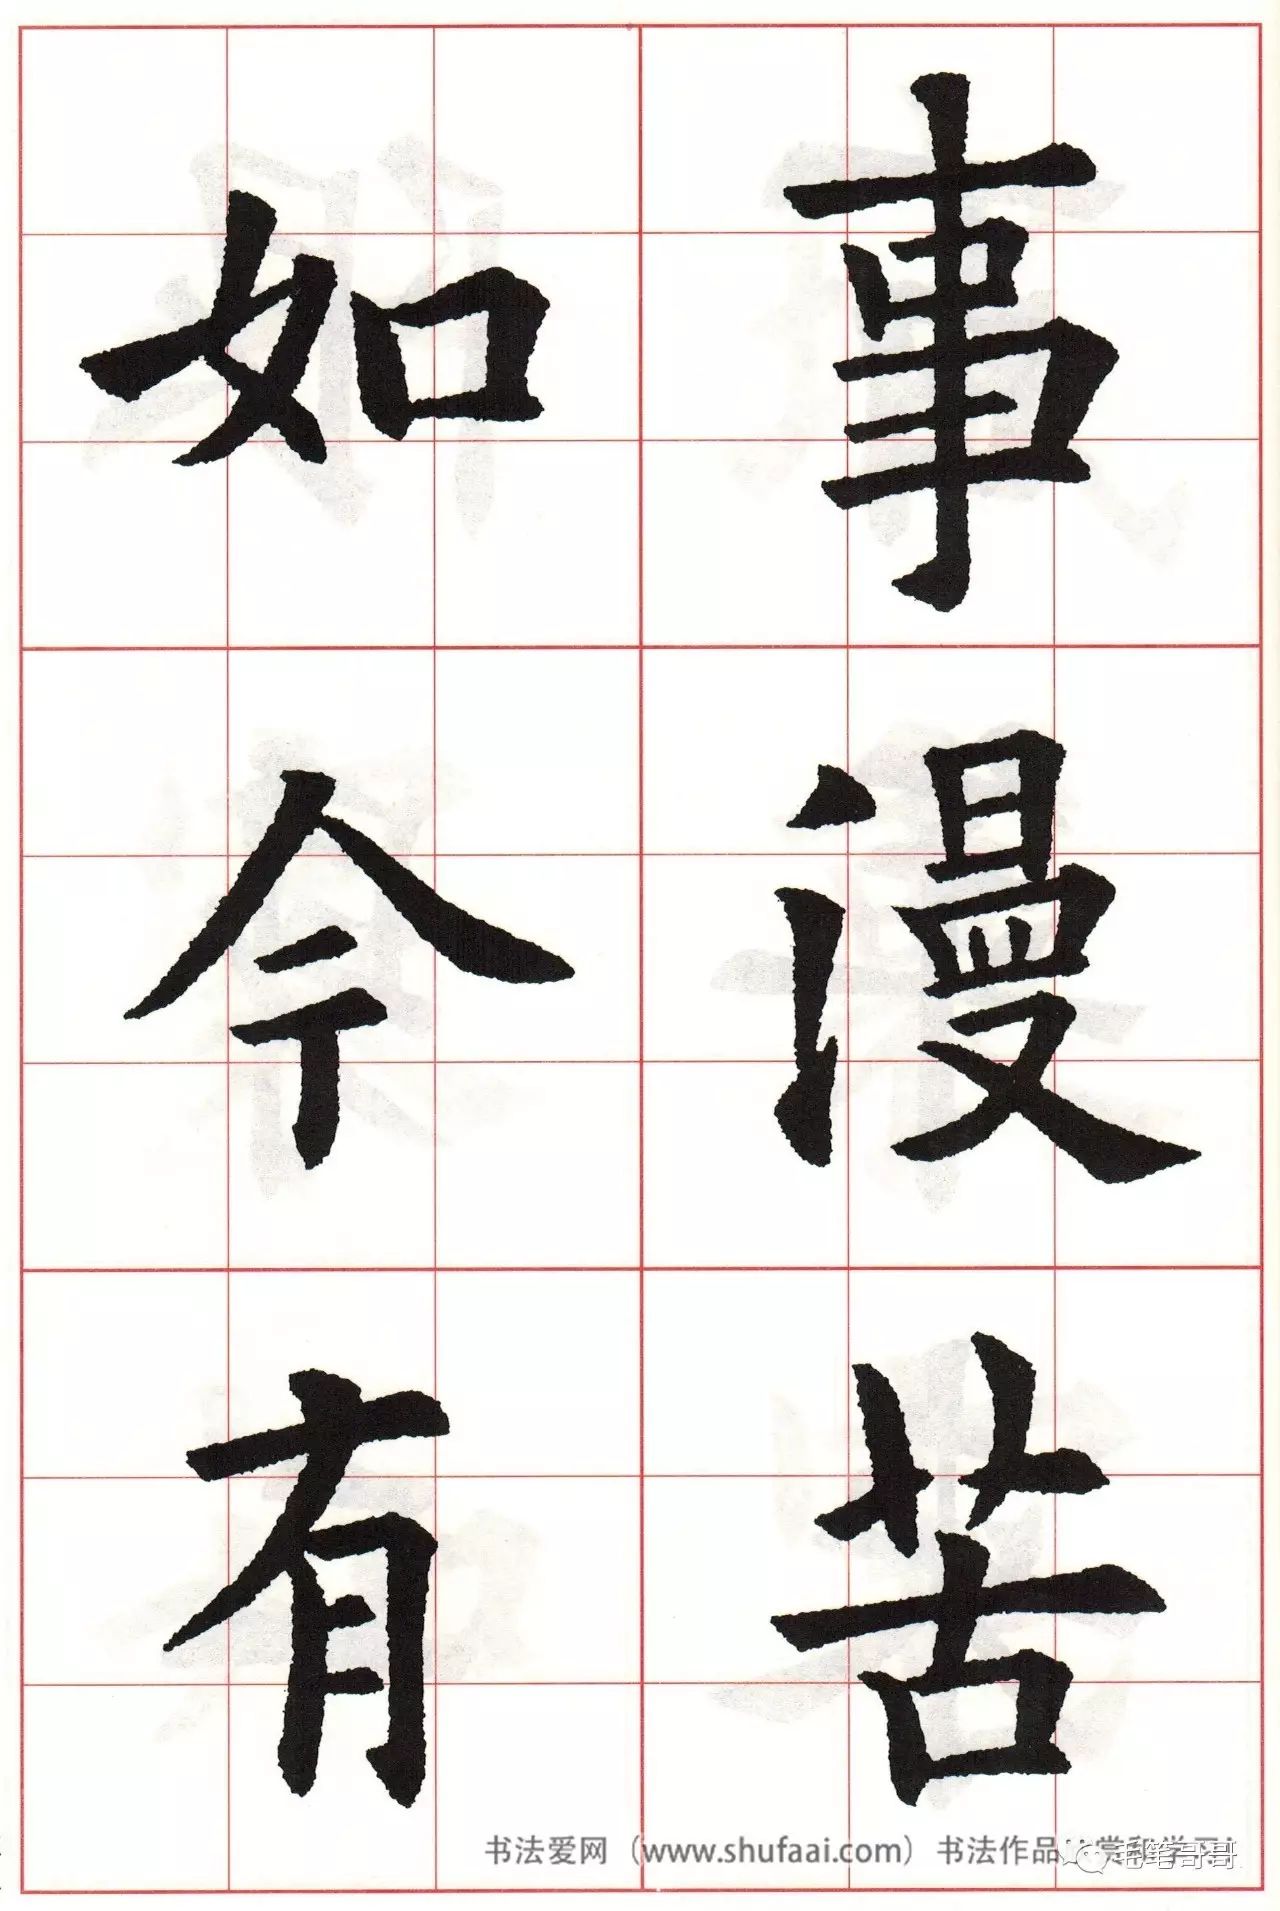 事漫苦
如今有
书法爱网（www.shufaai.com）书法作品欣赏和学习！
毛笔哥哥